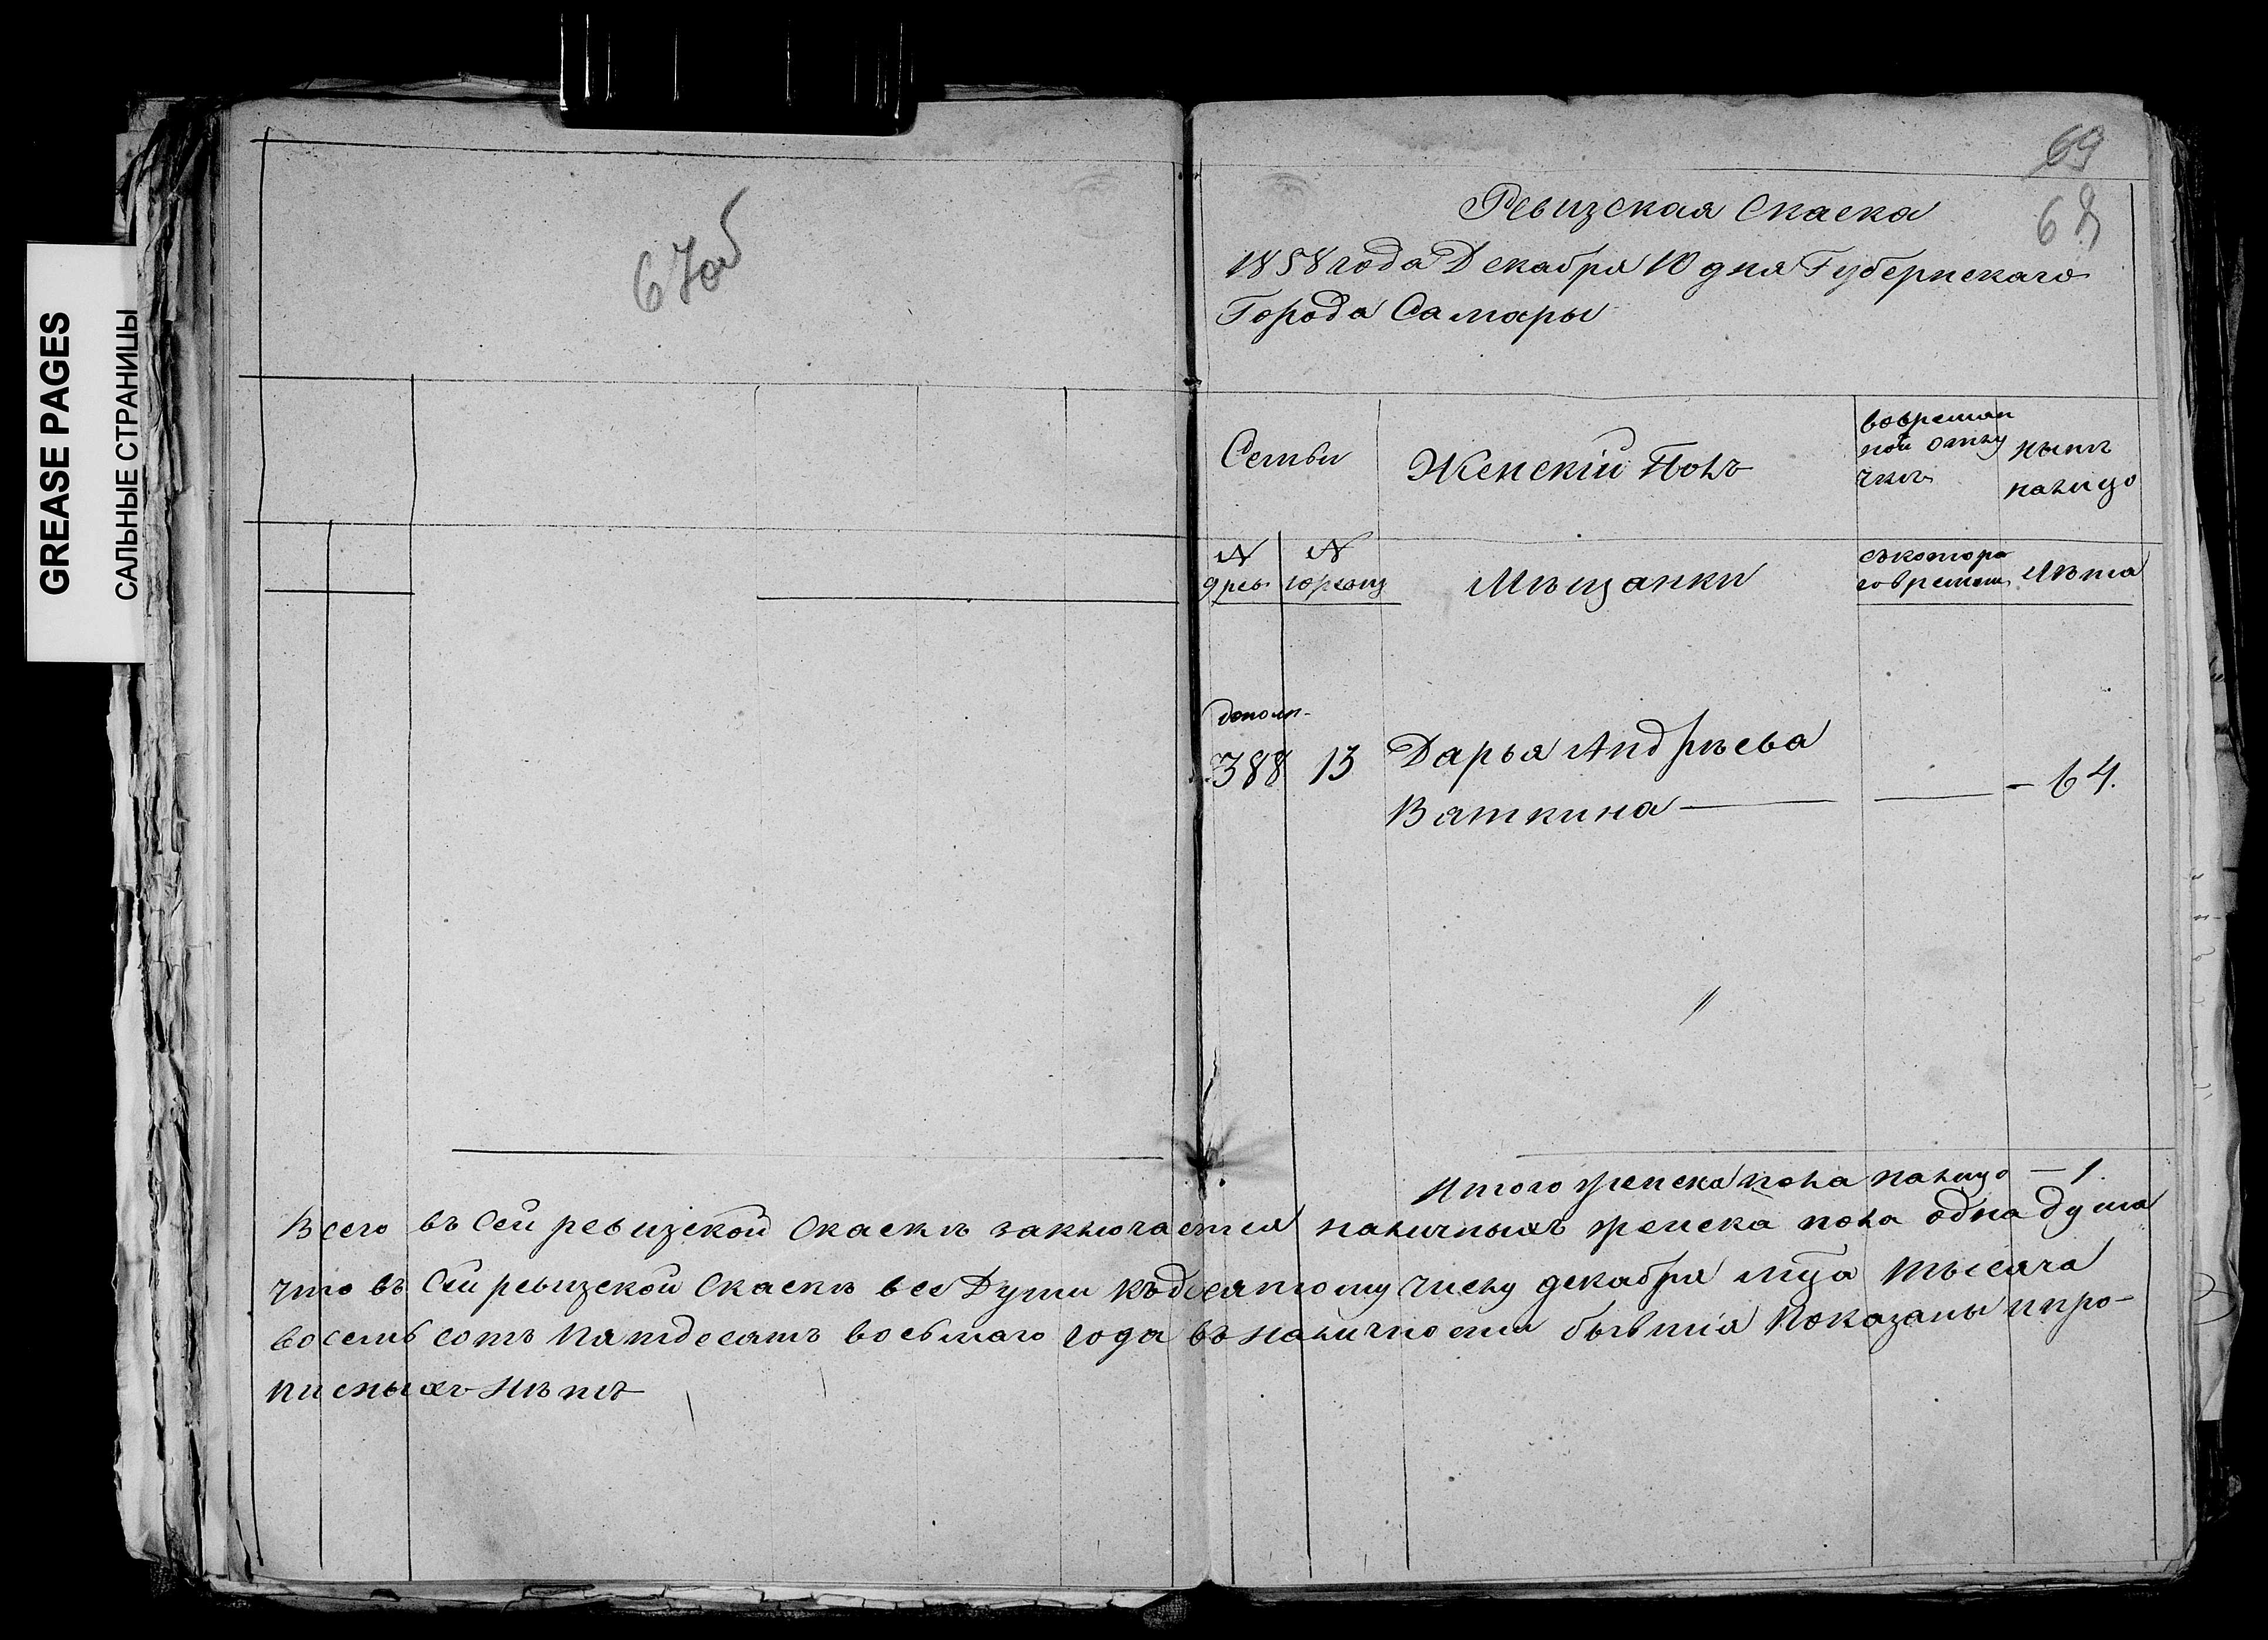 GREASE PAGES
САЛЬНЫЕ СТРАНИЦЫ
67об
69
68
Ревизская Скаска
1858 года Декабря 10 дня Губернскаго
Города Самары
Семьи
Женскій Полъ
вовремян
ной отлу
чкѣ
нынѣ
налицо
№
9 рев.
№
10 ревиз
Мѣщанки
съкотора
го времени
Лѣта
дополн.
388 13 Дарья Андрѣева
Вяткина — — — 64.
Итого женска пола налицо — 1.
Всего въ Сей ревизской Скаскѣ заключается наличныхъ женска пола одна душа
что въ Сей ревизской Скаскѣ все Души къдесятому числу декабря мца тысяча
восемь сотъ пятдесятъ восьмаго года въ наличности бывшія показаны ипро-
писныхъ нѣтъ